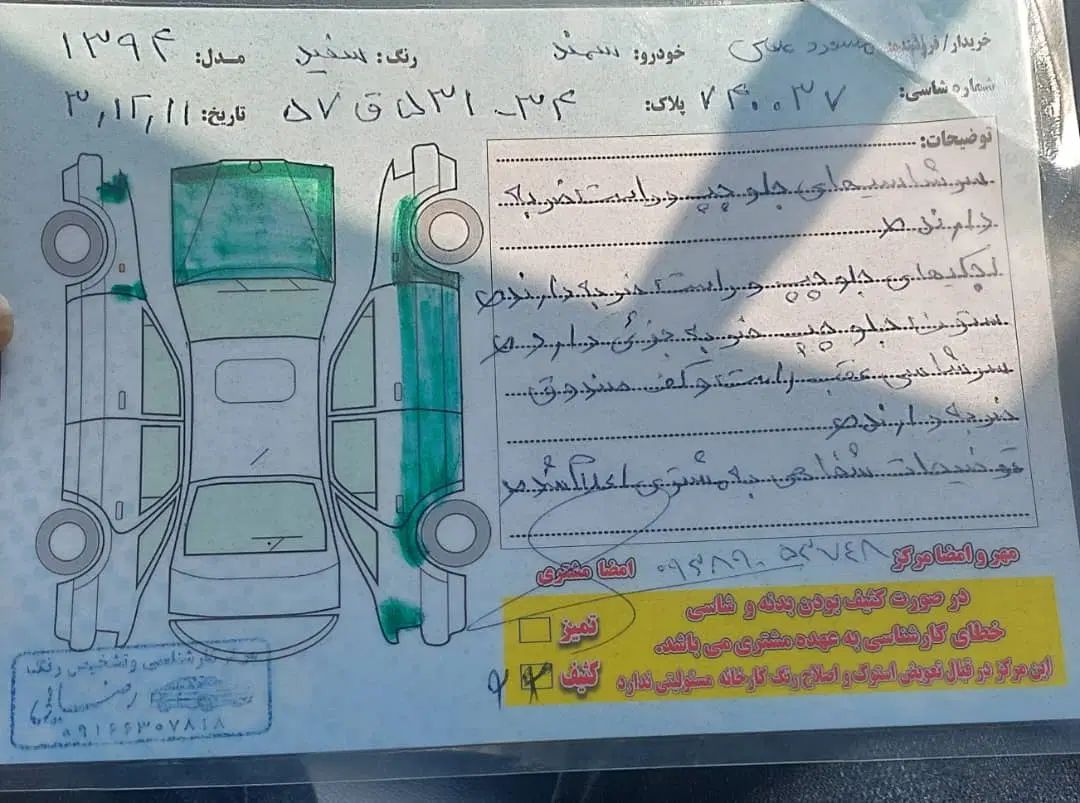 خریدار/فروشنده: مسعود عباسی خودرو: سمند رنگ: سفید مدل: ۱۳۹۴
شماره شاسی: ۷۴۰۰۳۷ پلاک: ۳۴ - ۵۳۱ ق ۵۷ تاریخ: ۳,۱۲,۱۱
توضیحات:
سرشاسیهای جلو چپ و راست ضربه
دارند
لچکیهای جلو چپ و راست ضربه دارند
ستون جلو چپ ضربه جزئی دارد
سرشاسی عقب راست و کف صندوق
ضربه دارند
توضیحات شفاهی به مشتری اعلام شد
مهر و امضا مرکز
امضا مشتری
در صورت کثیف بودن بدنه و شاسی
خطای کارشناسی به عهده مشتری می باشد.
این مرکز در قبال تعویض استوک و اصلاح رنگ کارخانه مسئولیتی ندارد
تمیز
کثیف
کارشناسی و تشخیص رنگ
۰۹۱۶۶۳۰۷۸۱۸